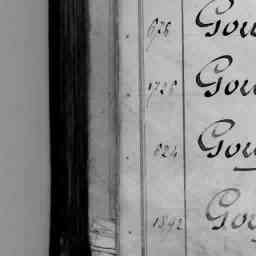 678 Gou
1728 Gou
624 Gou
1892 Goy